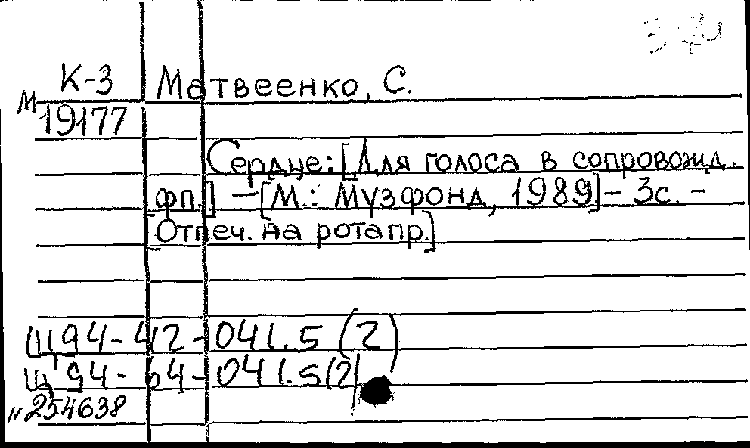 К-3 Матвеенко, С.
М 19177
Сердце: [Для голоса в сопровожд.
фп.] - [М.: Музфонд, 1989] - 3с. -
[Отпеч. на ротапр.]
Щ94-42-041.5 (2)
Щ94-64-041.5(2)
и 254638